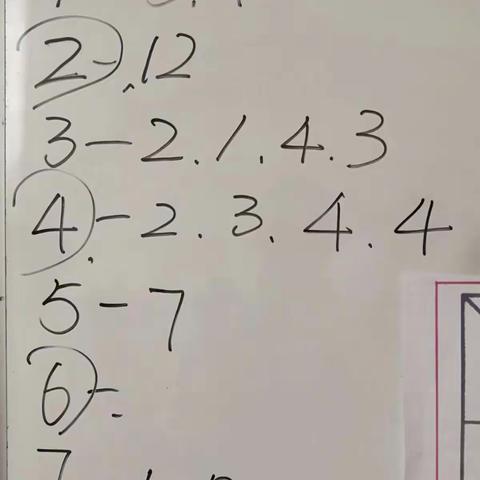 2-.12
3-2.1.4.3
4.-2.3.4.4
5-7
6-.
7